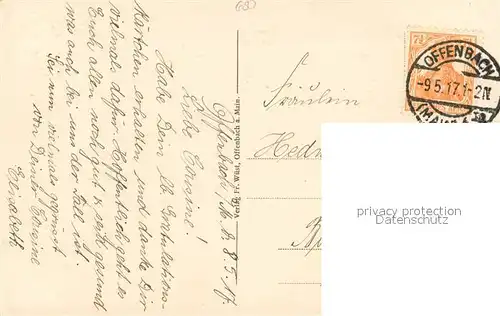 Offenbach, M. d. 8.5.17.
Liebe Cousine!
Habe Dein lb. Gratulations-
kärtchen erhalten und danke Dir
vielmals dafür. Hoffentlich geht es
Euch allen noch gut & seid gesund
was auch bei uns der Fall ist.
Sei nun vielmals gegrüsst
von Deiner Cousine
Elisabeth
Verlag Fr. Wüst, Offenbach a. Main.
7½
OFFENBACH
-9.5.17.1-2N
(MAIN)
Fräulein
privacy protection
Datenschutz